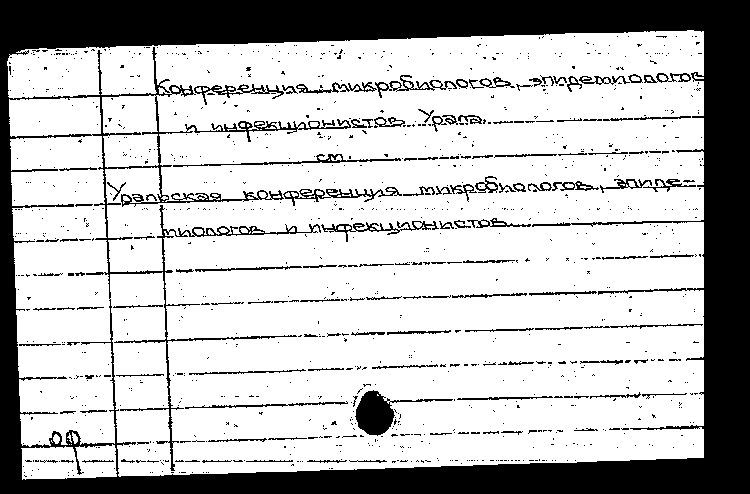 Конференция микробиологов, эпидемиологов
и инфекционистов Урала.
см.
Уральская конференция микробиологов, эпиде-
миологов и инфекционистов.
оф